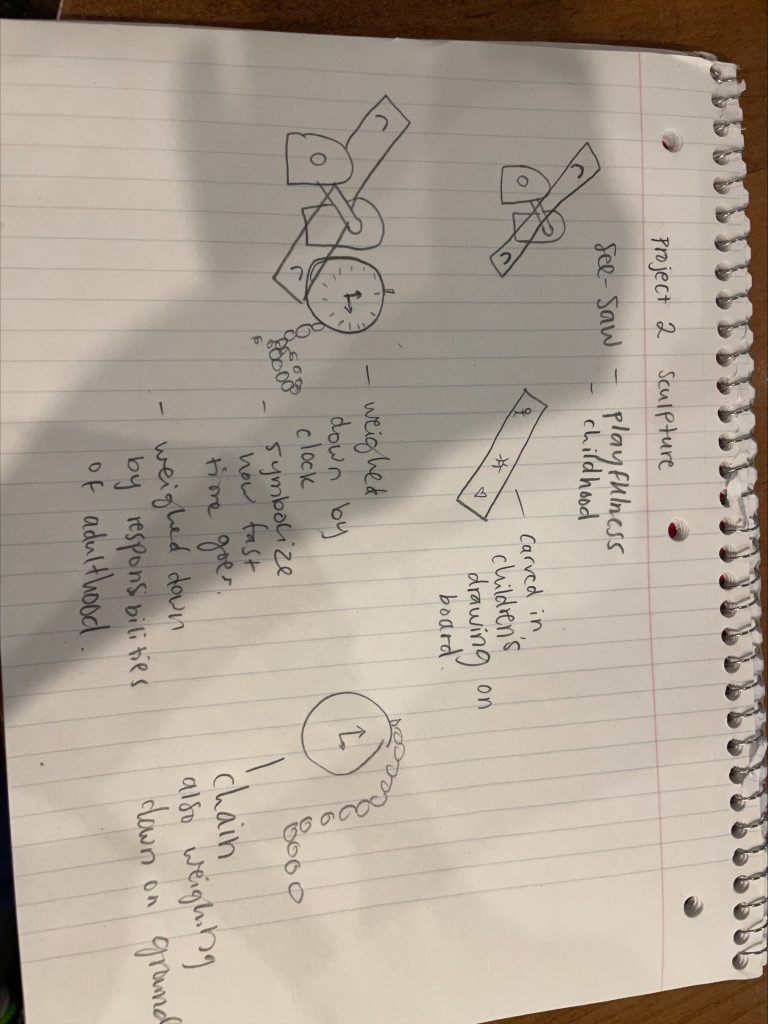 Project 2 Sculpture
See-Saw - playfulness
- childhood
- carved in
children's
drawing on
board.
- weighed
down by
clock
- symbolize
how fast
time goes.
- weighed down
by responsibilities
of adulthood.
- chain
also weighing
down on ground